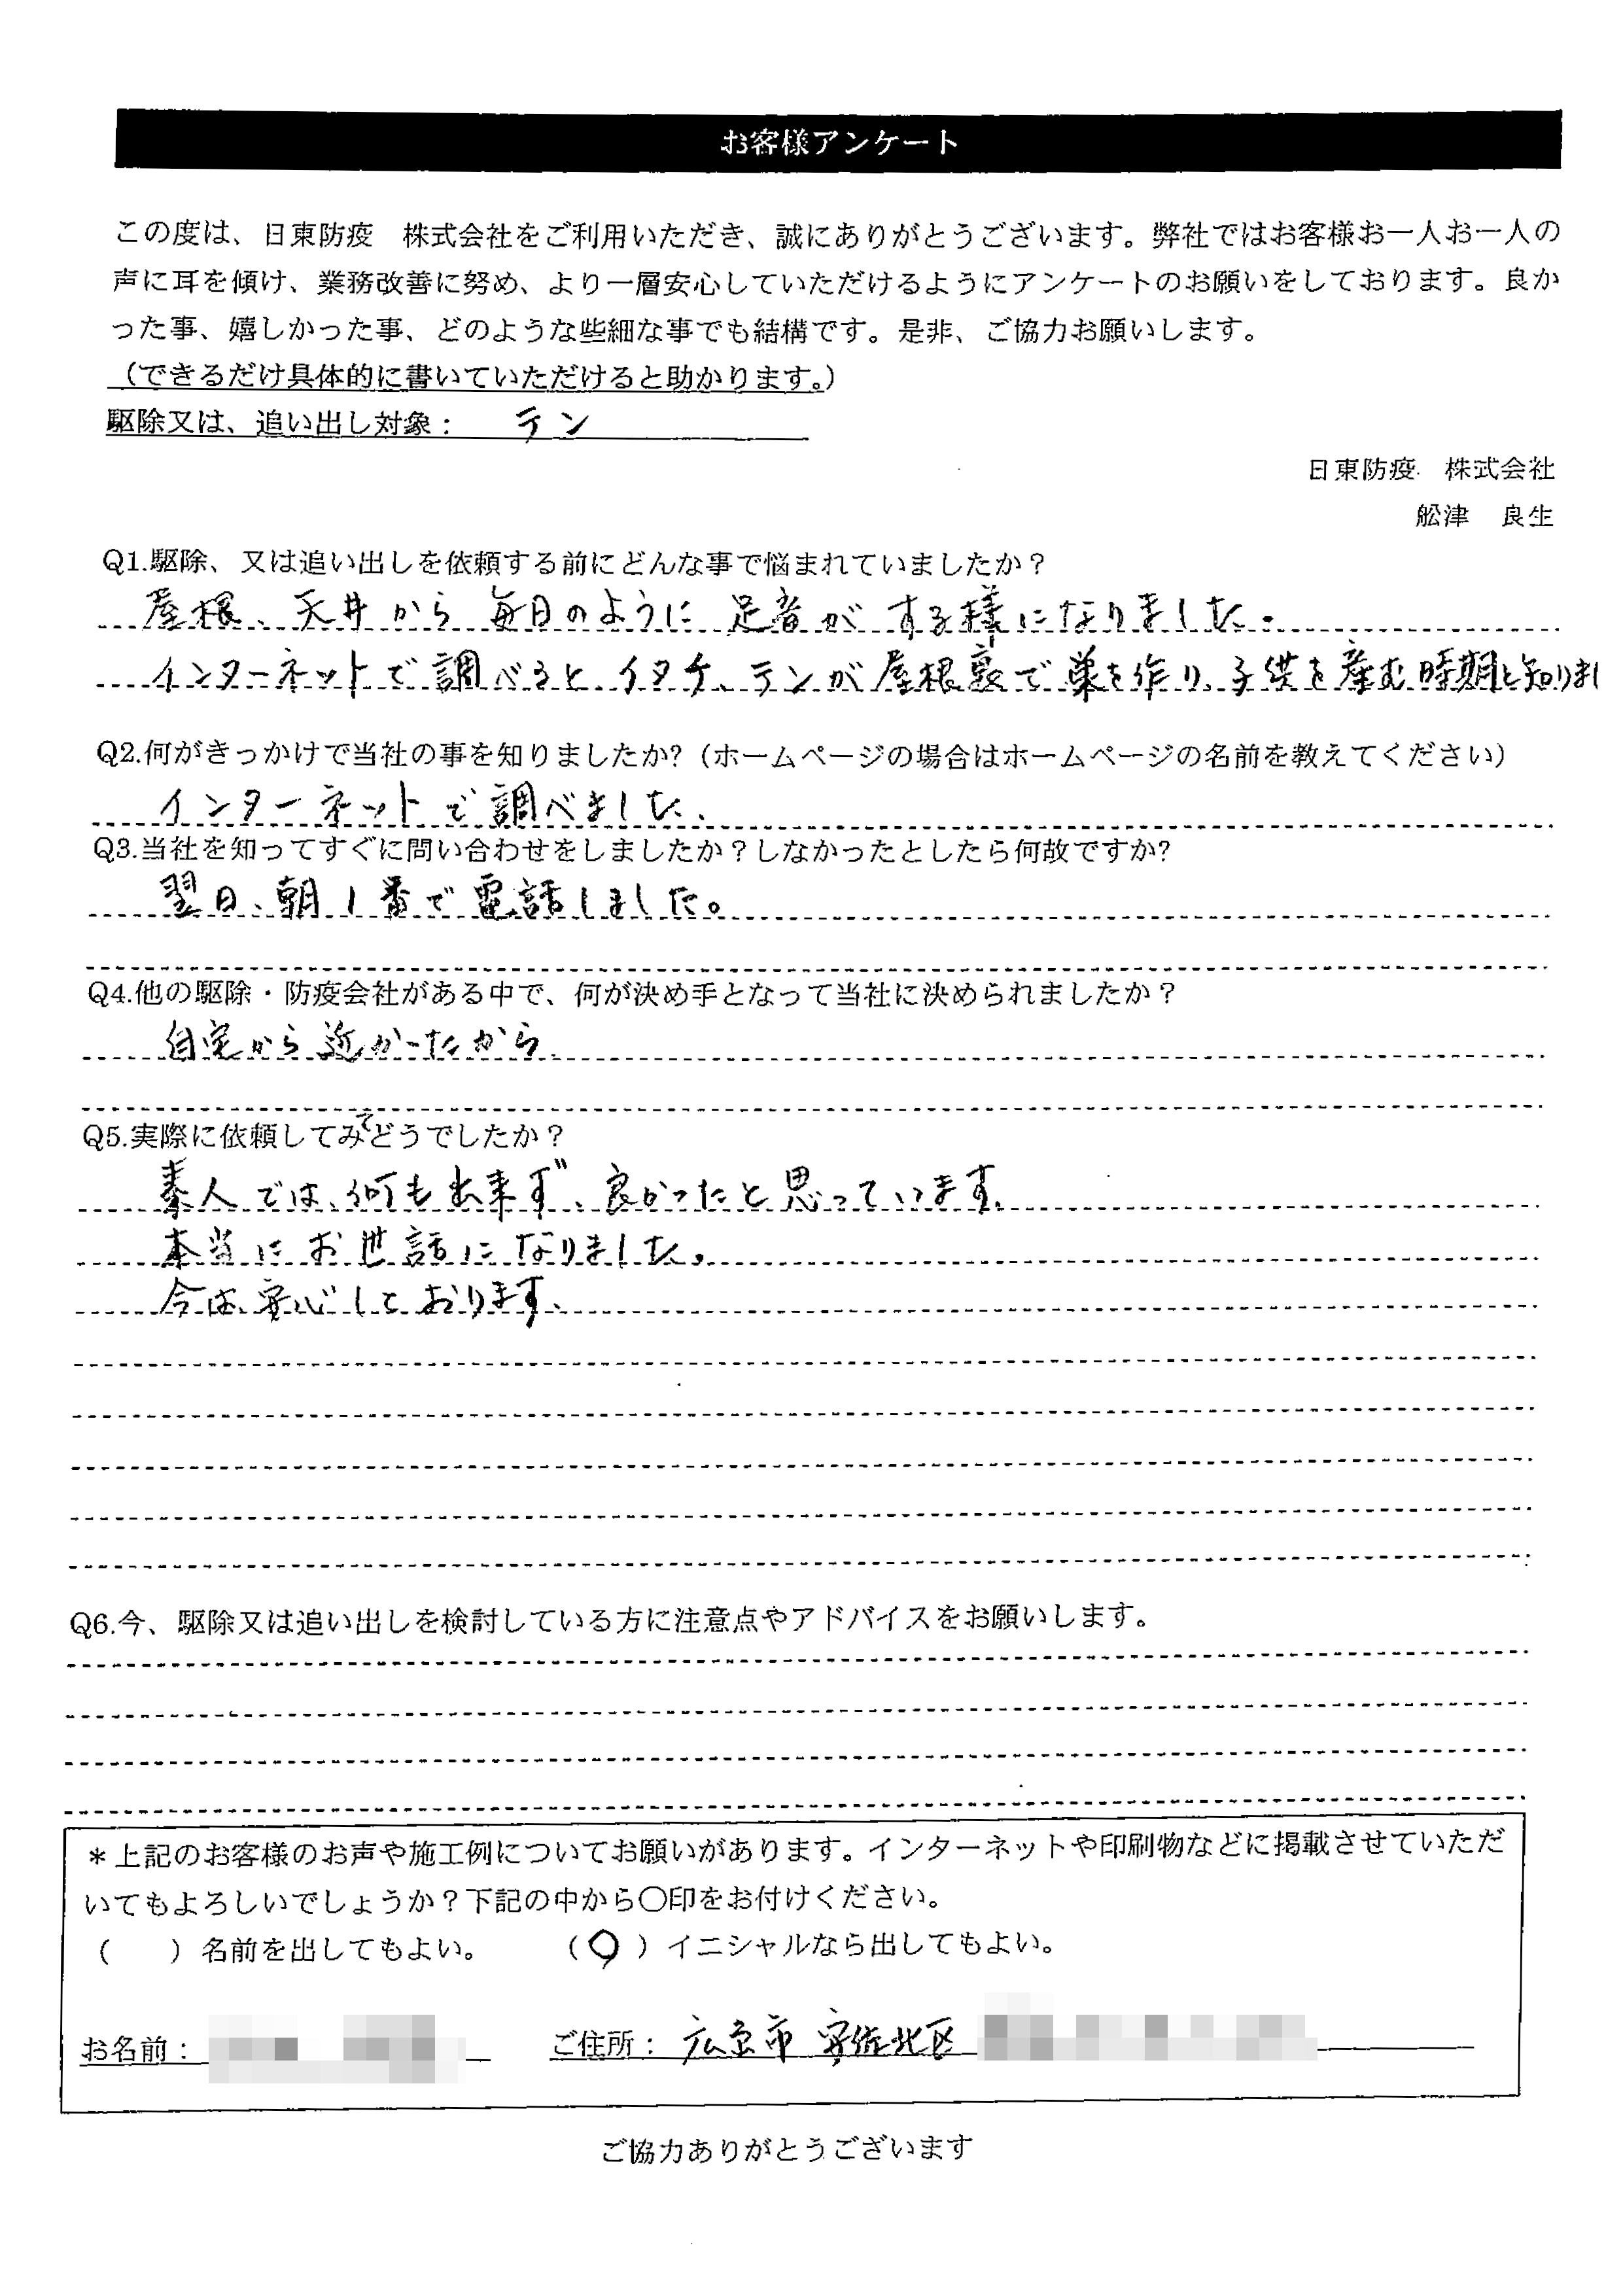 お客様アンケート
この度は、日東防疫　株式会社をご利用いただき、誠にありがとうございます。弊社ではお客様お一人お一人の
声に耳を傾け、業務改善に努め、より一層安心していただけるようにアンケートのお願いをしております。良か
った事、嬉しかった事、どのような些細な事でも結構です。是非、ご協力お願いします。
（できるだけ具体的に書いていただけると助かります。）
駆除又は、追い出し対象：　テン
日東防疫　株式会社
舩津　良生
Q1.駆除、又は追い出しを依頼する前にどんな事で悩まれていましたか？
屋根、天井から毎日のように足音がする様になりました。
インターネットで調べると、イタチ、テンが屋根裏で巣を作り、子供を産む時期と知りまし
Q2.何がきっかけで当社の事を知りましたか?（ホームページの場合はホームページの名前を教えてください）
インターネットで調べました.
Q3.当社を知ってすぐに問い合わせをしましたか？しなかったとしたら何故ですか?
翌日、朝1番で電話しました。
Q4.他の駆除・防疫会社がある中で、何が決め手となって当社に決められましたか？
自宅から近かったから.
Q5.実際に依頼してみてどうでしたか？
素人では、何も出来ず、良かったと思っています.
本当にお世話になりました.
今は、安心しております.
Q6.今、駆除又は追い出しを検討している方に注意点やアドバイスをお願いします。
＊上記のお客様のお声や施工例についてお願いがあります。インターネットや印刷物などに掲載させていただ
いてもよろしいでしょうか？下記の中から〇印をお付けください。
（　　）名前を出してもよい。　　（〇）イニシャルなら出してもよい。
お名前：　　ご住所：広島市 安佐北区
ご協力ありがとうございます